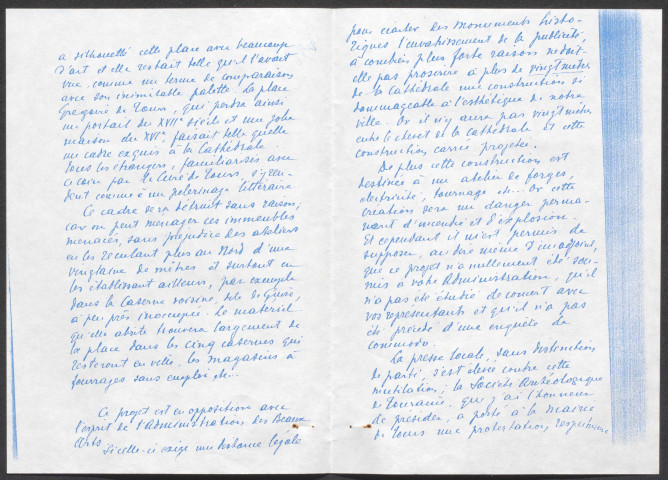 a silhouetté cette place avec beaucoup
d'art et elle restait telle qu'il l'avait
vue, comme un terme de comparaison
avec son inimitable palette. La place
Grégoire de Tours, qui perdra ainsi
un portail du XVIIe siècle et une jolie
maison du XVe, faisait telle quelle
un cadre exquis à la Cathédrale.
Tous les étrangers, familiarisés avec
ce coin par le Curé de Tours, s'y ren-
dent comme à un pèlerinage littéraire
Ce cadre sera détruit sans raison;
car on peut ménager ces immeubles
menacés, sans préjudice des ateliers
en les reculant plus au Nord d'une
vingtaine de mètres et surtout en
les établissant ailleurs, par exemple
dans la Caserne voisine, dite de Guise,
à peu près inoccupée. Le matériel
qu'elle abrite trouvera largement de
la place dans les cinq casernes qui
resteront en ville, les magasins à
fourrages sans emploi etc..
Ce projet est en opposition avec
l'esprit de l'Administration des Beaux
Arts.
Si celle-ci exige une distance légale
pour écarter des Monuments histo-
riques l'envahissement de la publicité,
à combien plus forte raison
elle pas proscrire à plus de vingt mètres
de la Cathédrale une construction si
dommageable à l'esthétique de notre
ville. Or il n'y aura pas vingt mètres
entre le chevet de la Cathédrale et cette
construction carrée projetée.
De plus cette construction est
destinée à un atelier de forges,
électricité, tournage etc... Or cette
création sera un danger perma-
nent d'incendie et d'explosion.
Et cependant il m'est permis de
supposer, au dire même d'un adjoint,
que ce projet n'a nullement été sou-
mis à votre Administration, qu'il
n'a pas été étudié de concert avec
vos représentants et qu'il n'a pas
été précédé d'une enquête de
commodo.
La presse locale, sans distinction
de parti, s'est élevée contre cette
mutilation; la Société Archéologique
de Touraine, que j'ai l'honneur
de présider, a porté à la Mairie
de Tours une protestation, respectueuse